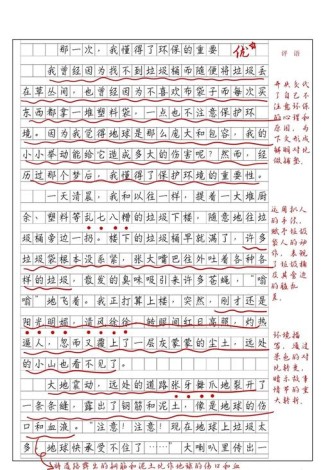 那一次，我懂得了环保的重要
优
评语
我曾经因为找不到垃圾桶而随便将垃圾丢
在草丛间，也曾经因为不喜欢布袋子而每次买
东西都拿一堆塑料袋，一点也不注意保护环
境。因为我觉得地球是那么庞大和包容，我的
小小举动能给它造成多大的伤害呢？然而，经
历过那个梦后，我懂得了环境保护的重要性。
一天清晨，我和以往一样，提着一大堆厨
余、塑料等乱七八糟的垃圾下楼，随意地往垃
圾桶旁边一扔。楼下的垃圾桶早就满了，许多
垃圾袋根本没系紧，张大嘴巴往外吐着各种各
样的垃圾，散发的臭味吸引来许多苍蝇，“嗡
嗡”地飞着。我正打算上楼，突然，刚才还是
阳光明媚、清风徐徐，转眼间红日高照，灼热
逼人，忽而又覆上了一层灰蒙蒙的尘土，远处
的小山也看不见了。
大地震动，远处的道路张牙舞爪地裂开了
一条条缝，露出了钢筋和泥土，像是地球的伤
口和血液。“注意！注意！现在地球上垃圾太
多，地球快承受不住了……”大喇叭里传出一
开头交代
了自己不
注意环保
的心理和
原因，为
下文形成
鲜明对比
做铺垫。
运用拟人
的手法，
赋予垃圾
袋人的动
作，表现
了垃圾桶
及其旁边
的脏乱
差。
环境描
写，通过
景色的对
比转变，
暗示故事
情节的重
大转折。
将道路露出的钢筋和泥土比作地球的伤口和血